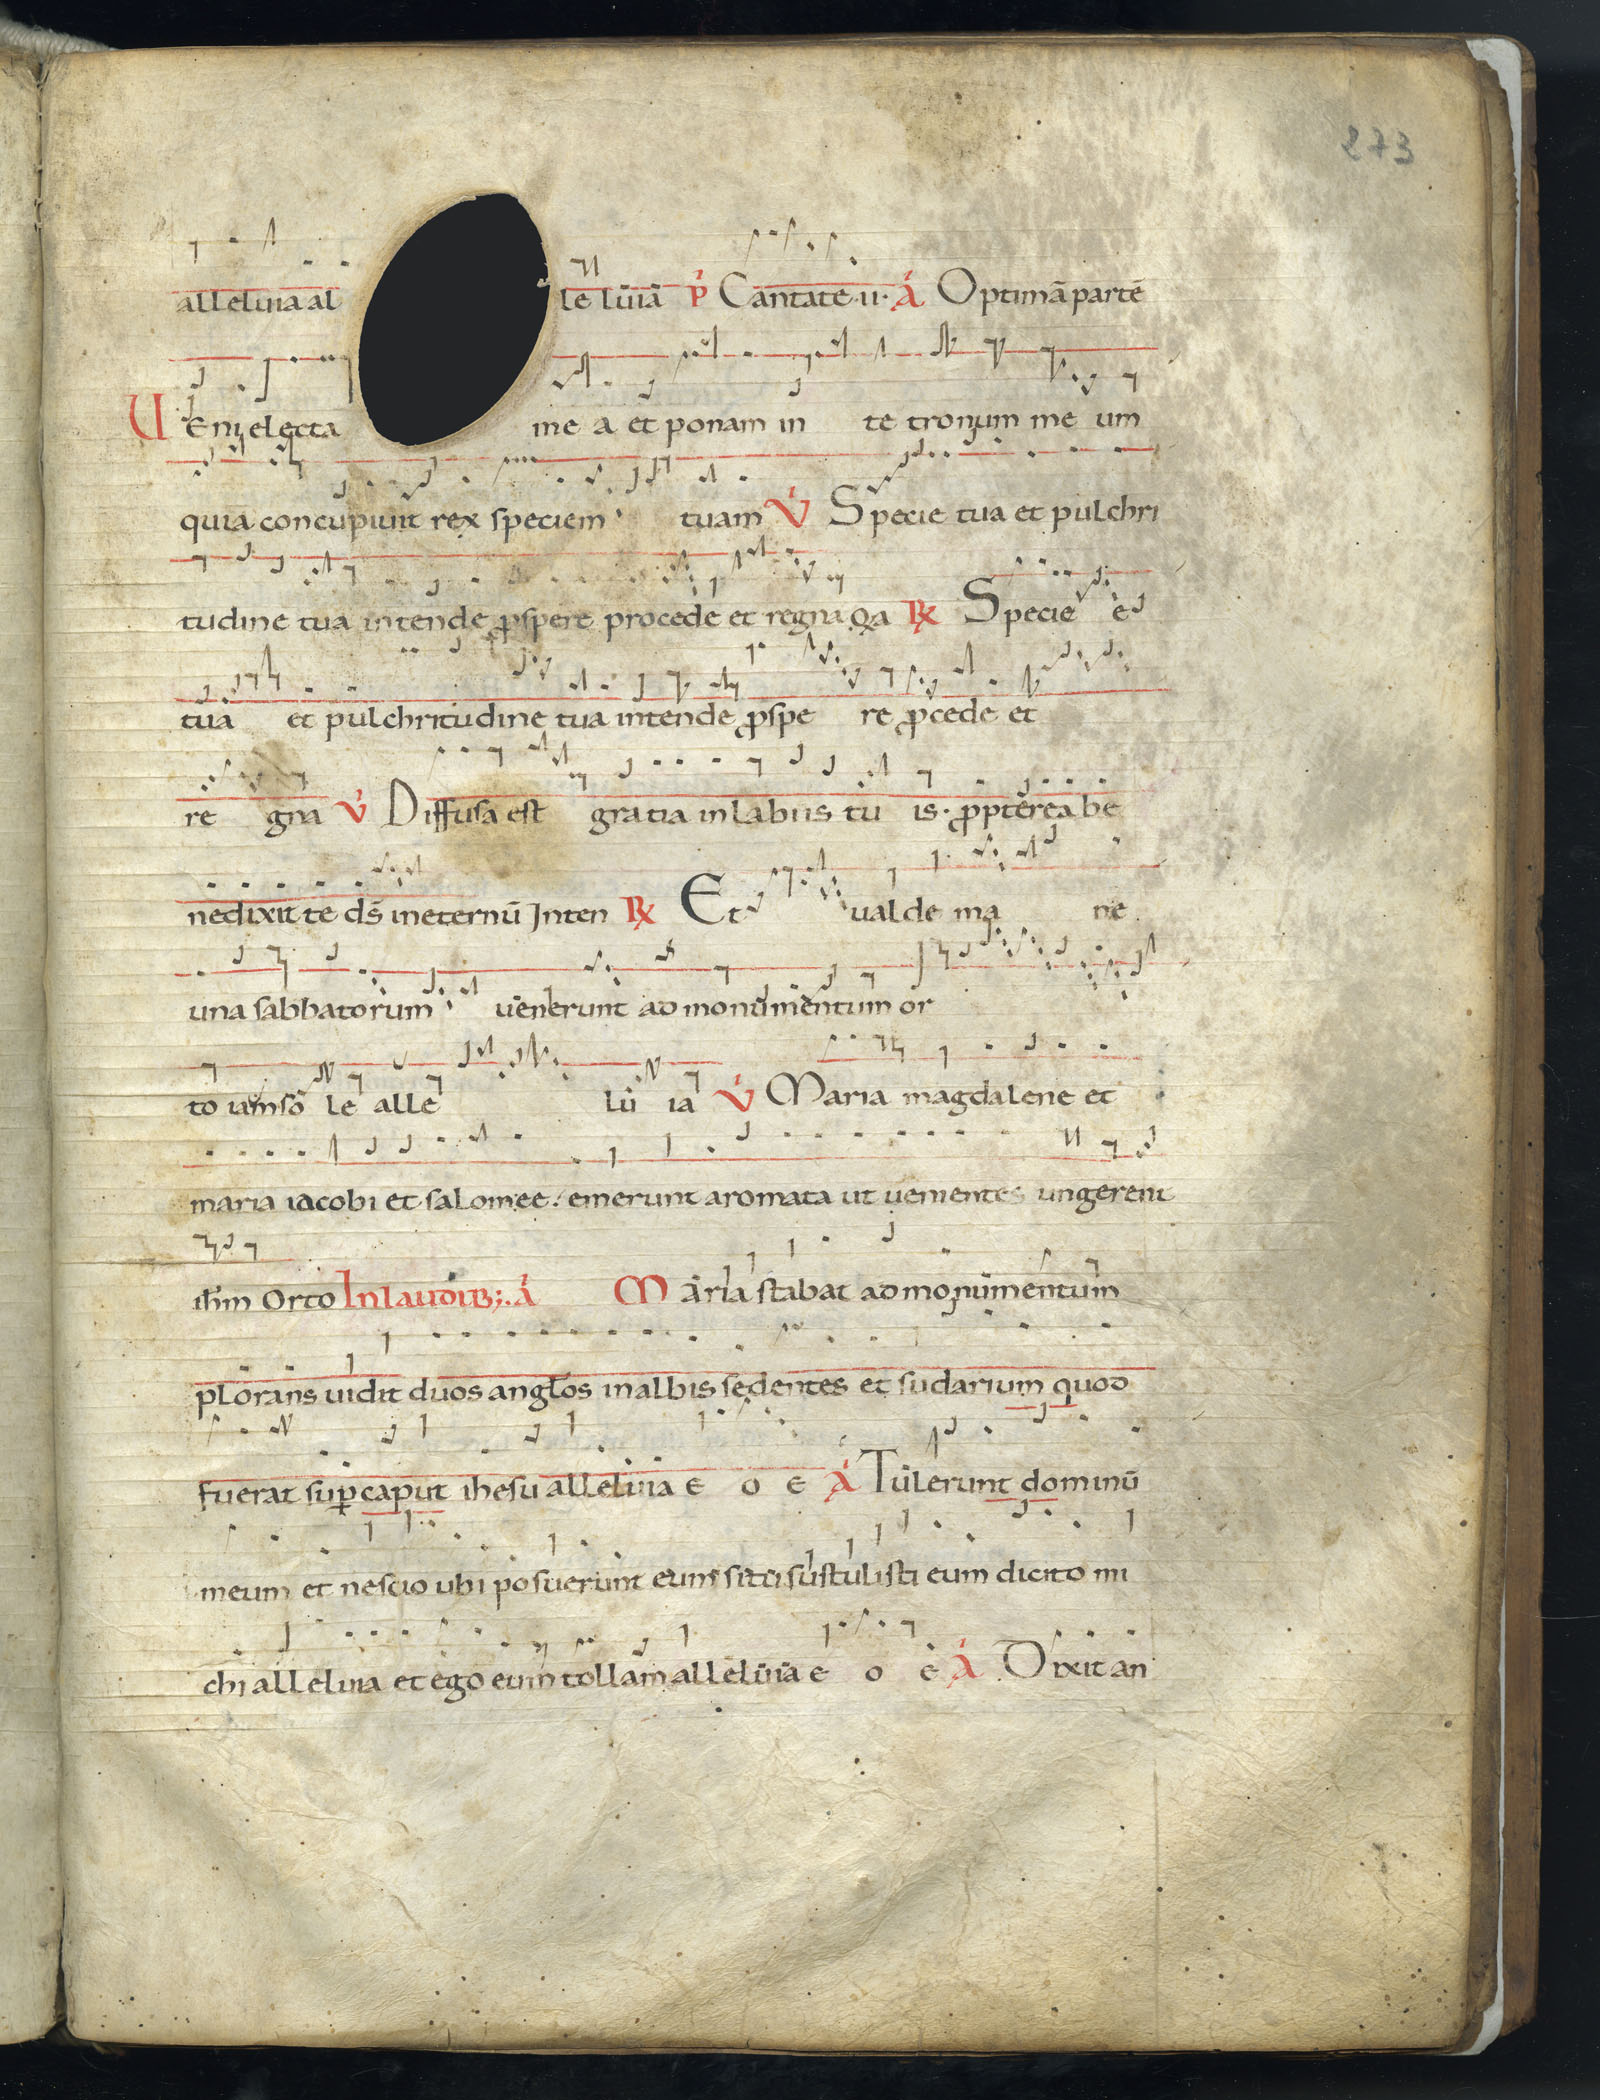 273
alleluia al le luia P Cantate·ii· A Optimā partē
UEni electa me a et ponam in te tronum me um
quia concupiuit rex speciem tuam V Specie tua et pulchri
tudine tua intende ꝓspere procede et regna Qa R Specie
tua et pulchritudine tua intende ꝓspe re ꝓcede et
re gna V Diffusa est gratia in labiis tu is· ꝓpterea be
nedixit te ds̄ ineternū Inten R Et ualde ma ne
una sabbatorum uenerunt ad monumentum or
to iam so le alle lu ia V Maria magdalene et
maria iacobi et salomee· emerunt aromata ut uenientes ungerent
ihm̄ Orto In laudib;· A Maria stabat ad monumentum
plorans uidit duos angłos inalbis sedentes et sudarium quod
fuerat suꝑ caput ihesu alleluia e o e A Tulerunt dominū
meum et nescio ubi posuerunt eum si tu sustulisti eum dicito mi
chi alleluia et ego eum tollam alleluia e o e A Dixit an